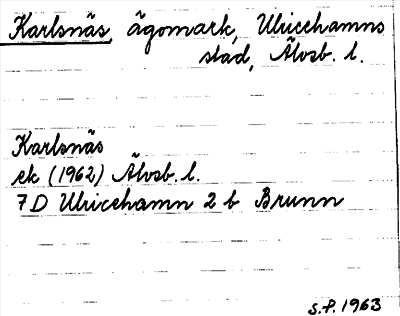 Karlsnäs, ägomark, Ulricehamns
stad, Älvsb. l.
Karlsnäs
ek (1962) Älvsb. l.
7 D Ulricehamn 2 b Brunn
S.P. 1963